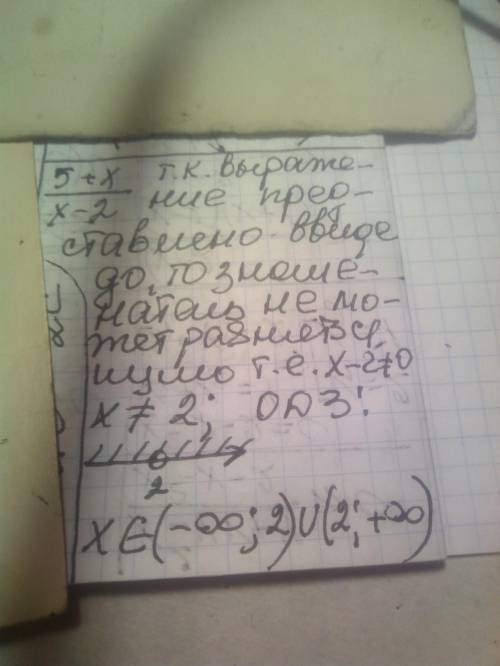 5+x т.к. выраже-
x-2 ние пред-
ставлено ввиде
до, то знаме-
натель не мо-
жет равняться
нулю т.е. x-2≠0
x ≠ 2; ОДЗ:
2
x∈(-∞; 2)∪(2; +∞)